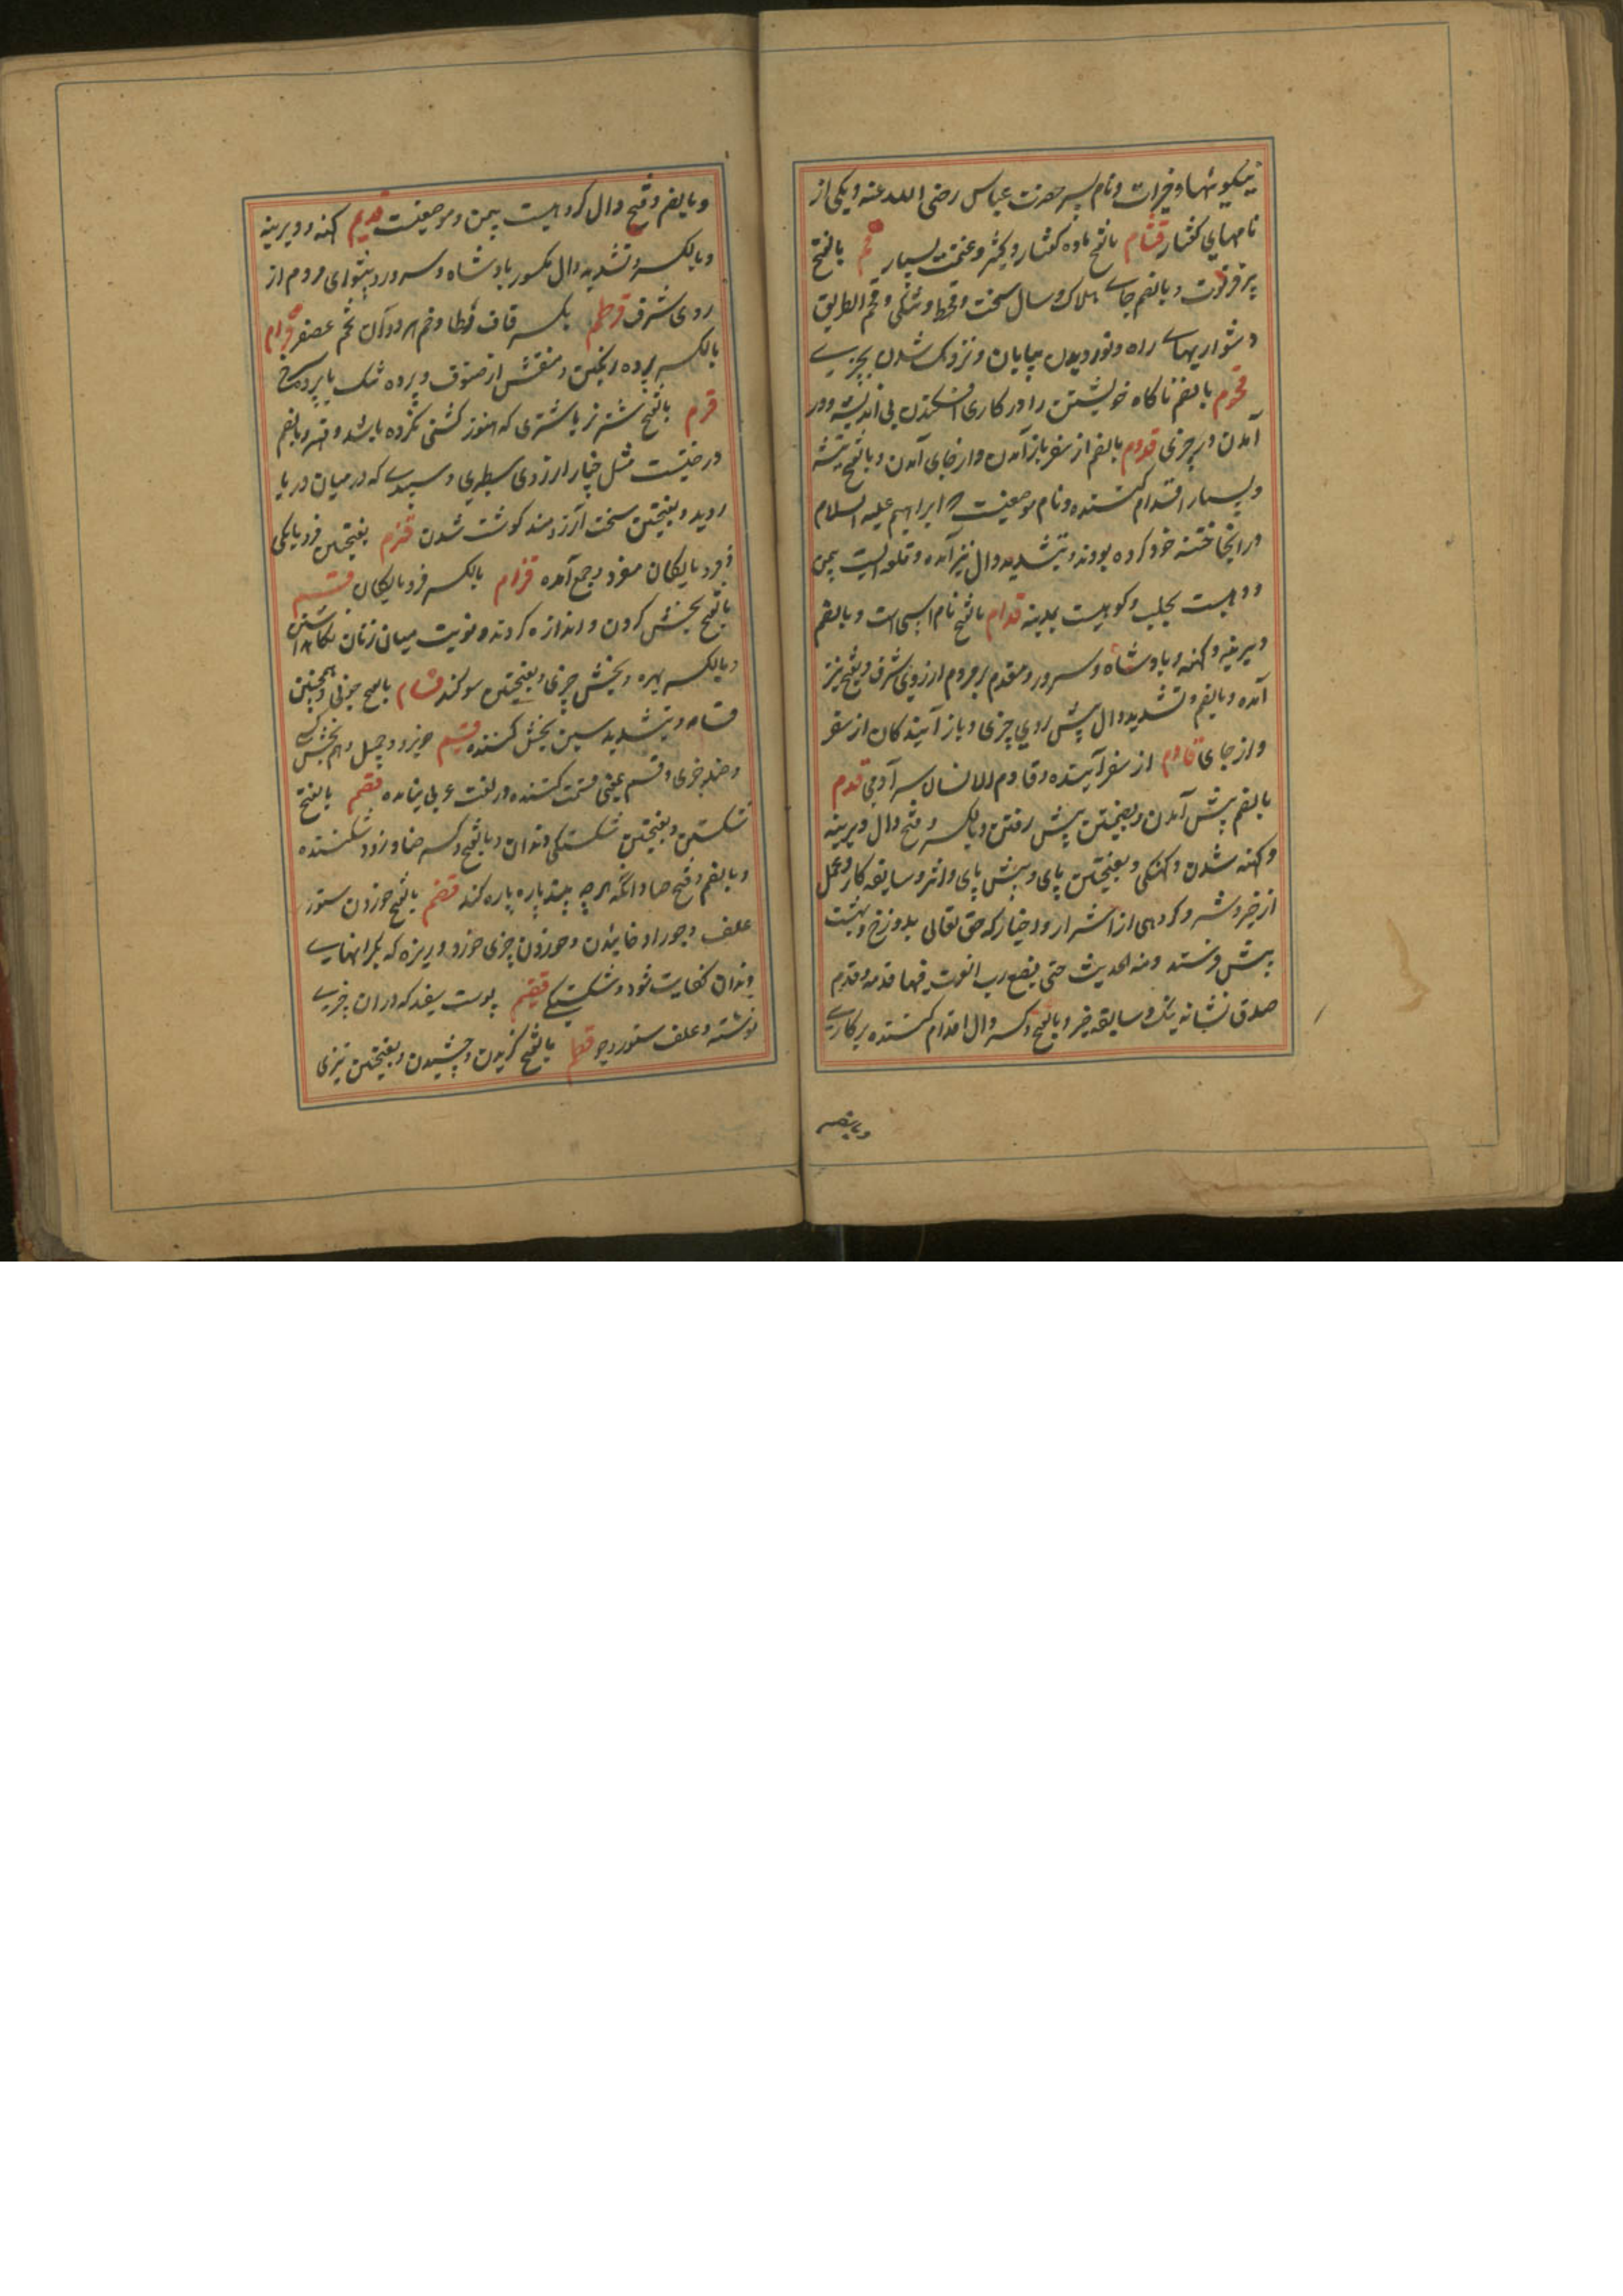 نیکوئیها و خیرات و نام پسر حضرت عباس رضی الله عنه و یکی از
نامهای کفتار قثام بالفتح ماده کفتار و کنیز و غنیمت بسیار قحم بالفتح
پیر فرتوت و بالضم جای هلاک و سال سخت و قحط و تنگی و قحم الطریق
دشواریهای راه و نوردیدن بیابان و نزدیک شدن بچیزی
قحوم بالضم ناکاه خویشتن را در کاری افکندن بی اندیشه و در
آمدن در چیزی قدوم بالضم از سفر باز آمدن و از جای آمدن و بالفتح تیشه
و بسیار اقدام کننده و نام موضعیست که ابراهیم علیه السلام
در انجا ختنه خود کرده بودند و بتشدید دال نیز آمده و قلعه ایست بیمن
و دهیست بحلب و کوهیست بمدینه قدام بالفتح نام اسپی است و بالضم
دیرینه و کهنه و پادشاه و سرور و مقدم بر مردم از روی شرف و بفتح نیز
آمده و بالضم و تشدید دال پیش روی چیزی و باز آیندکان از سفر
و از جای قادم از سفر آینده و قادم الانسان سر آدمی قدم
بالضم پیش آمدن و بضمتین پیش رفتن و بالکسر و فتح دال دیرینه
و کهنه شدن و کهنگی و بفتحتین پای و پیش پای و اثر و سابقه کار و عمل
از خیر و شر و کروهی از اشرار و اخیار که حق تعالی بدوزخ و بهشت
پیش فرستد و منه الحدیث حتی یضع رب العزت فیها قدمه و قدم
صدق نشانه نیک و سابقه خیر و بالفتح و کسر دال اقدام کننده بر کاری
و بالضم
و بالضم و فتح دال کروهیست بیمن و موضعیست قدیم کهنه و دیرینه
و بالکسر و تشدید دال مکسور پادشاه و سرور و پیشوای مردم از
روی شرف قرطم بکسر قاف و طا و ضم هر دو آن تخم عصفر قرام
بالکسر پرده رنکین و منقش از صوف و پرده تنک یا پرده سرخ
قرم بالفتح شتر نر یا شتری که هنوز کشنی نکرده باشد و مهتر و بالضم
درختیست مثل چنار از روی سطبری و سپیدی که در میان دریا
روید و بفتحتین سخت آرزومند کوشت شدن قزم بفتحتین فرومایکی
و فرومایکان مفرد و جمع آمده قزام بالکسر فرومایکان قسم
بالفتح بخش کردن و اندازه کردن و نوبت میان زنان نکاهداشتن
و بالکسر بهره و بخش چیزی و بفتحتین سوکند قسام بالفتح خوبی و همچنین
قسامه و بتشدید سین بخش کننده قسیم خوبرو و جمیل و هم بخش کسی
و حصه چیزی و قسیم بمعنی قسمت کننده در لغت عربی نیامده قصم بالفتح
شکستن و بفتحتین شکستگی دندان و بالفتح و کسر صاد زود شکننده
و بالضم و فتح صاد انکه هر چه بیند پاره پاره کند قضم بالفتح خوردن ستور
علف و جو را و خائیدن و خوردن چیزی خورد و ریزه که بکرانهای
دندان کفایت شود و شکستگی قضیم پوست سفید که در ان چیزی
نوشته و علف ستور و جو قطم بالفتح کزیدن و چشیدن و بفتحتین تیزی